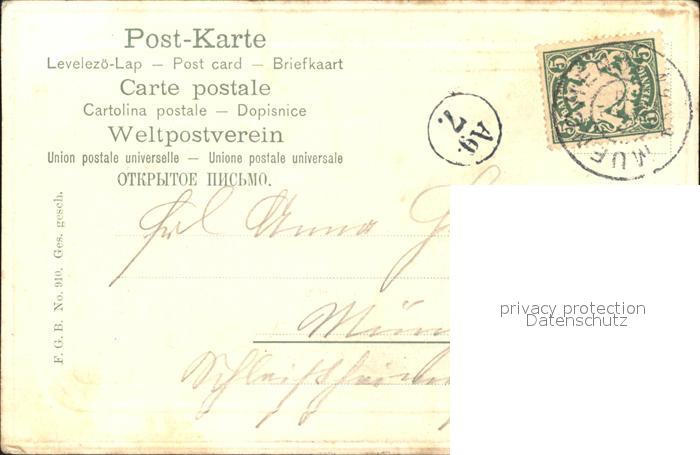 Post-Karte
Levelező-Lap — Post card — Briefkaart
Carte postale
Cartolina postale — Dopisnice
Weltpostverein
Union postale universelle — Unione postale universale
ОТКРЫТОЕ ПИСЬМО.
F. G. B. No. 910. Ges. gesch.
Ag.
7.
5 5
5 5
MUE
Frl Anna
Mün
privacy protection
Datenschutz